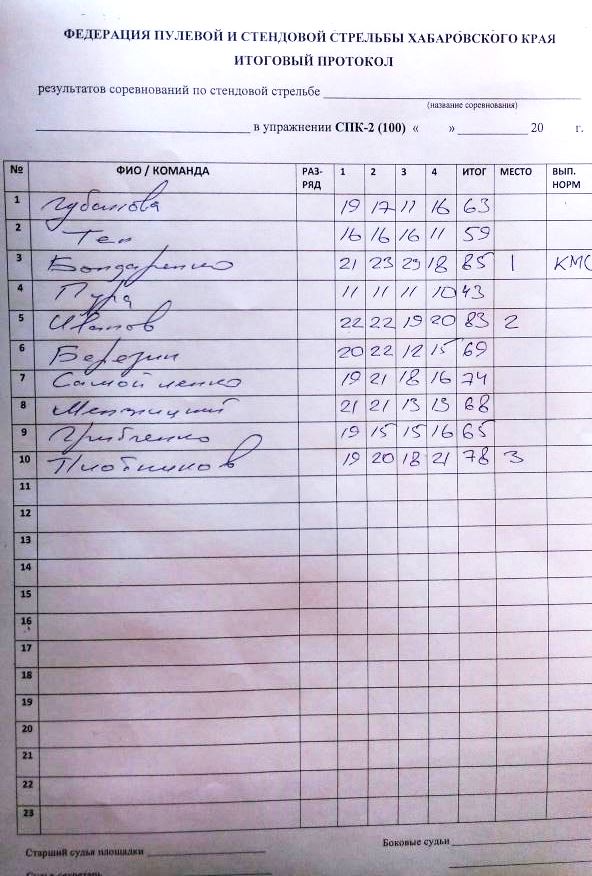 ФЕДЕРАЦИЯ ПУЛЕВОЙ И СТЕНДОВОЙ СТРЕЛЬБЫ ХАБАРОВСКОГО КРАЯ
ИТОГОВЫЙ ПРОТОКОЛ
результатов соревнований по стендовой стрельбе
(название соревнования)
в упражнении СПК-2 (100) « » 20 г.
№ ФИО / КОМАНДА РАЗ-РЯД 1 2 3 4 ИТОГ МЕСТО ВЫП. НОРМ
1 19 17 11 16 63
2 Тен 16 16 16 11 59
3 Бондаренко 21 23 23 18 85 1 КМС
4 11 11 11 10 43
5 Иванов 22 22 19 20 83 2
6 Березин 20 22 12 15 69
7 Самойленко 19 21 18 16 74
8 21 21 13 13 68
9 Грибченко 19 15 15 16 65
10 Плотников 19 20 18 21 78 3
11
12
13
14
15
16
17
18
19
20
21
22
23
Боковые судьи
Старший судья площадки
Судья секретарь